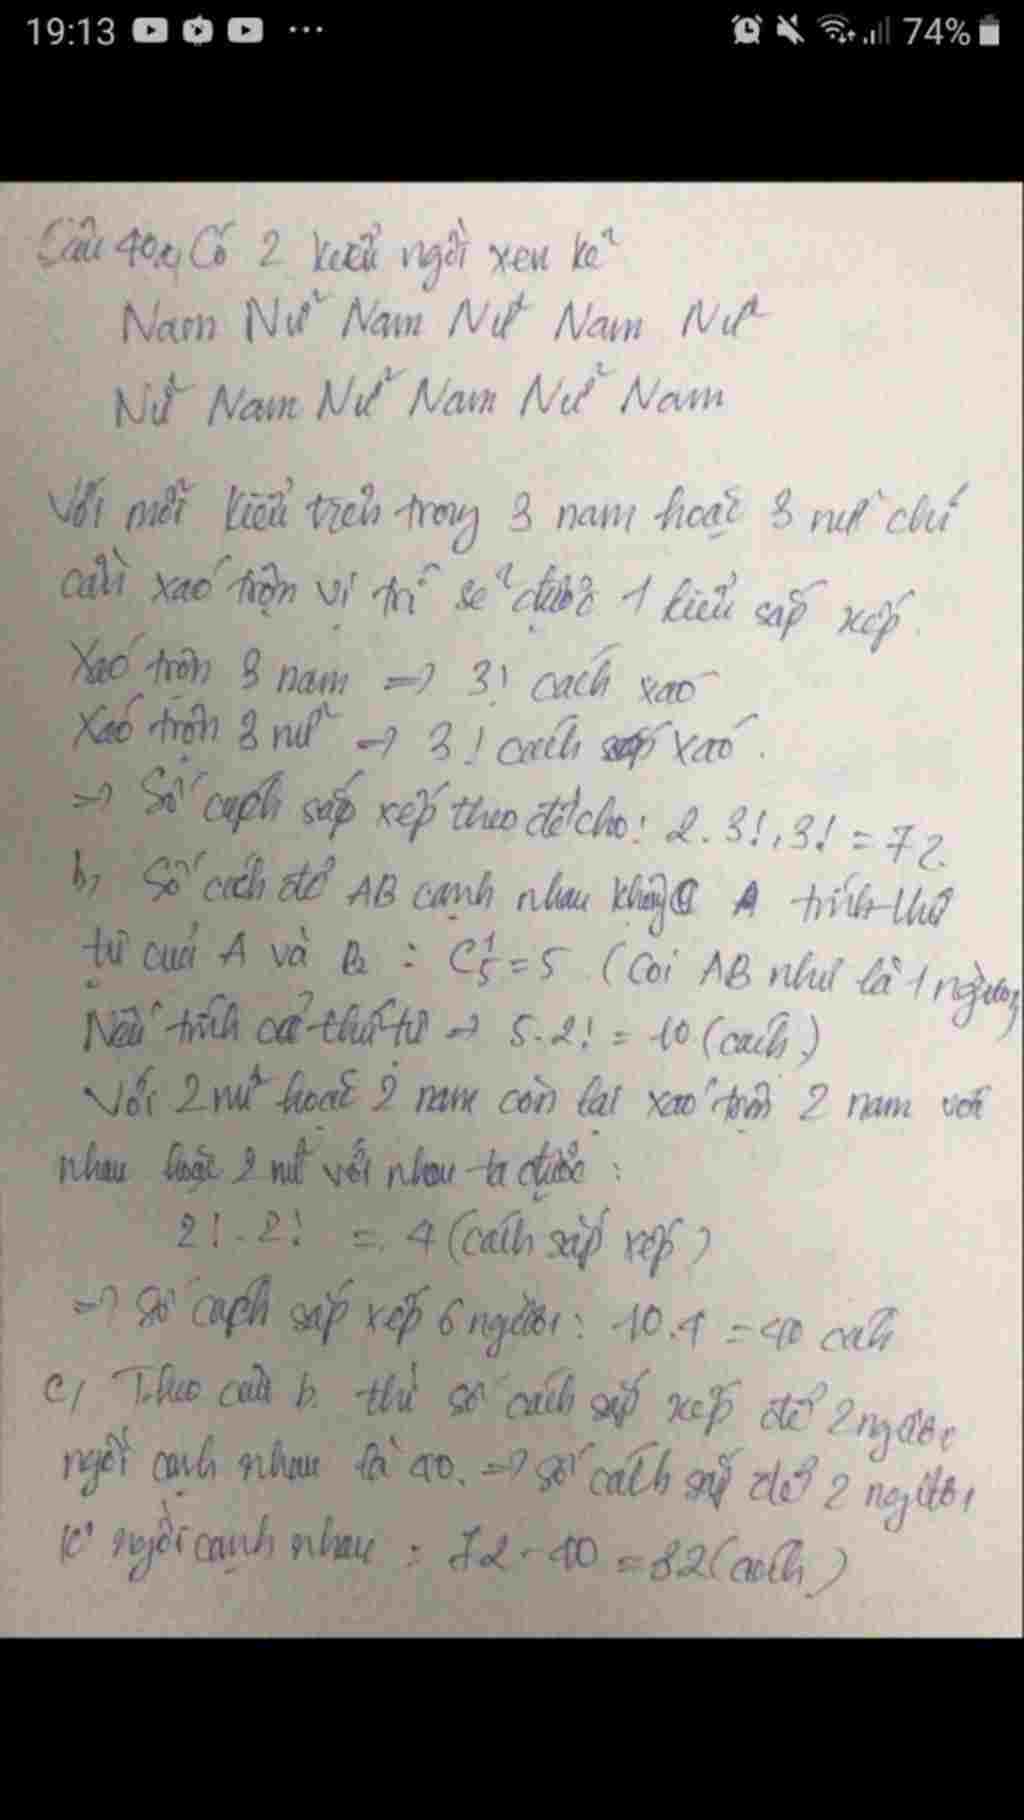 19:13 ... 74%
Câu 40a, Có 2 kiểu ngồi xen kẽ
Nam Nữ Nam Nữ Nam Nữ
Nữ Nam Nữ Nam Nữ Nam
Với mỗi kiểu trên trong 3 nam hoặc 3 nữ chỉ
cần xáo trộn vị trí sẽ được 1 kiểu sắp xếp.
Xáo trộn 3 nam => 3! cách xáo
Xáo trộn 3 nữ => 3! cách xáo.
=> Số cách sắp xếp theo đề cho: 2.3!.3! = 72.
b, Số cách để AB cạnh nhau không tính thứ
tự của A và B : C¹₅ = 5 (coi AB như là 1 người)
Nếu tính cả thứ tự => 5.2! = 10 (cách)
Với 2 nữ hoặc 2 nam còn lại xáo trộn 2 nam với
nhau hoặc 2 nữ với nhau ta được :
2! . 2! = 4 (cách sắp xếp)
=> Số cách sắp xếp 6 người: 10.4 = 40 cách
c, Theo câu b. thì số cách sắp xếp để 2 người
ngồi cạnh nhau là 40. => số cách sắp để 2 người
k° ngồi cạnh nhau : 72 - 40 = 32 (cách)